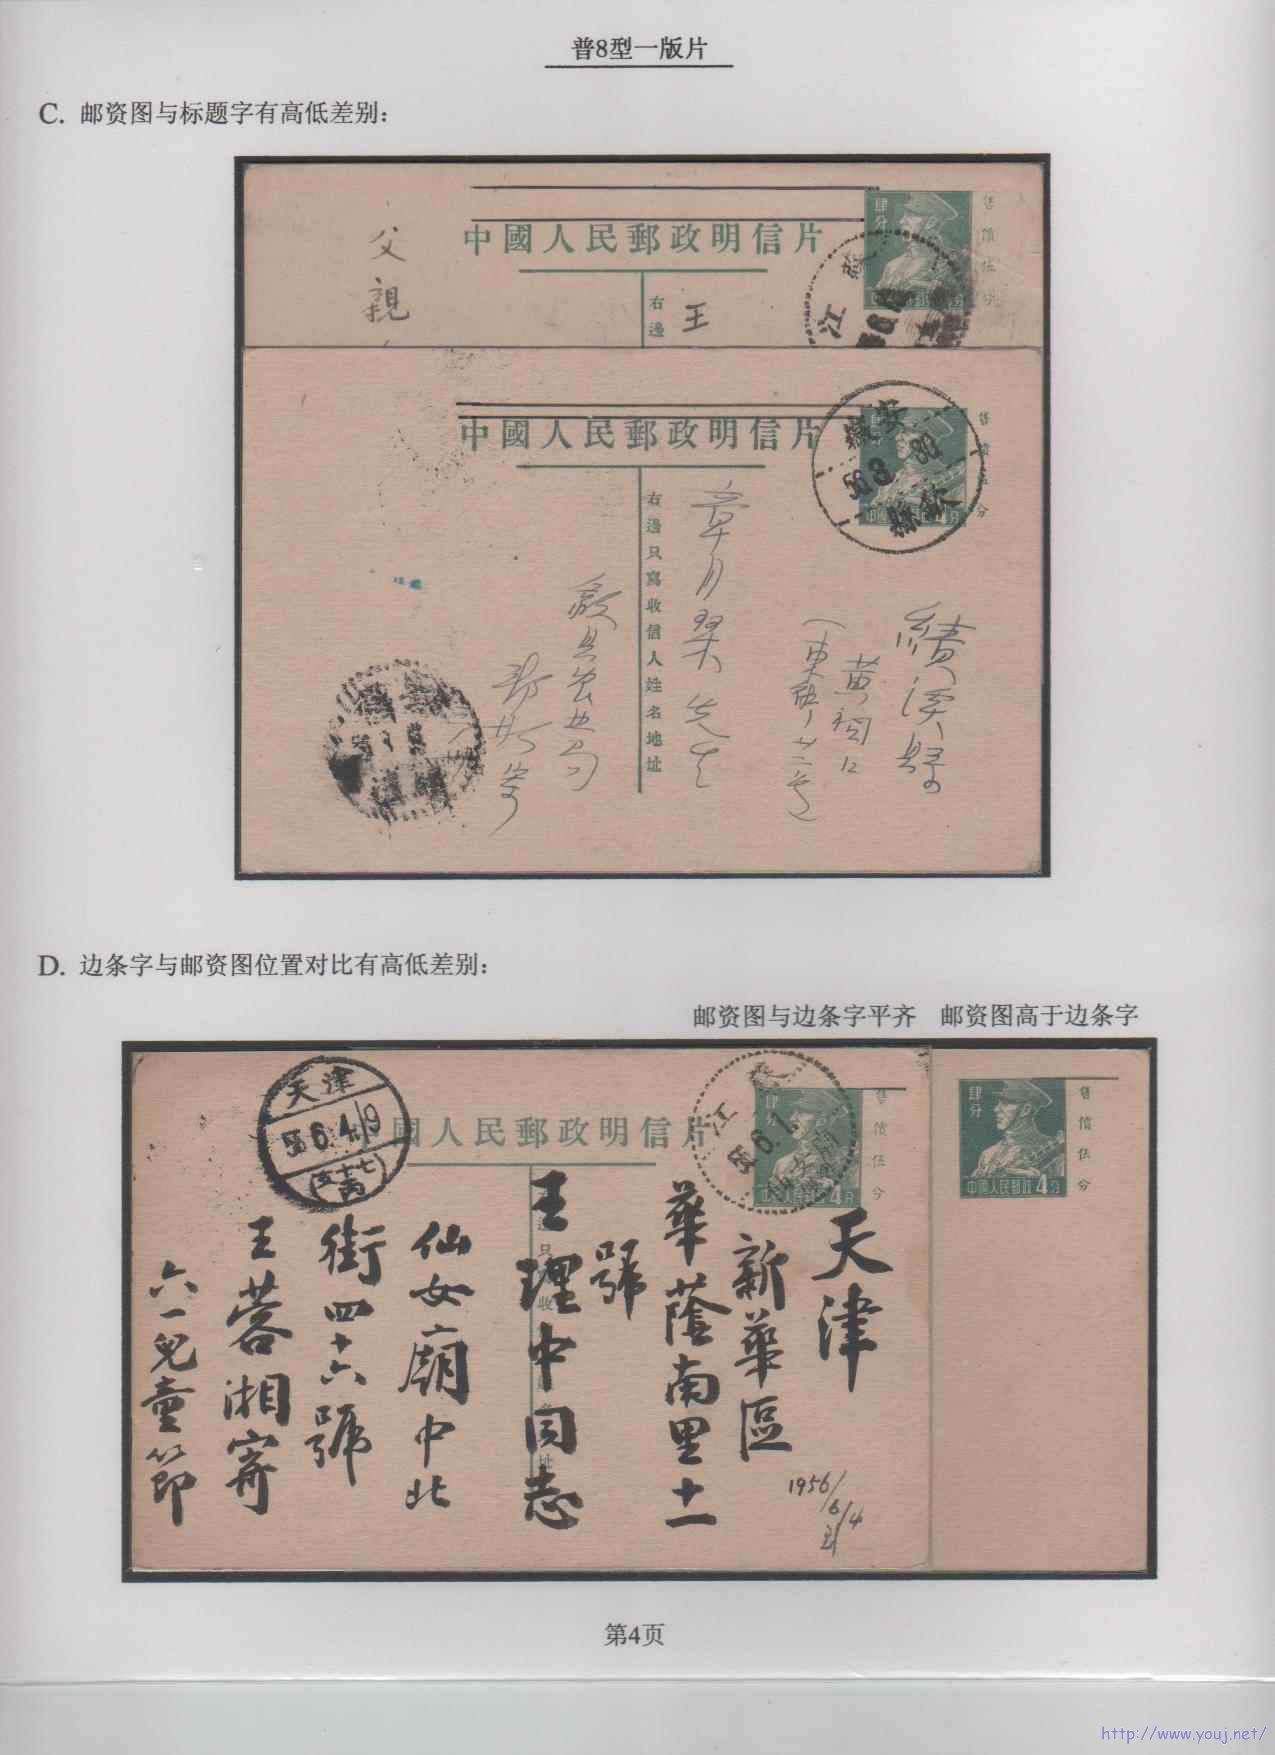 普8型一版片
C. 邮资图与标题字有高低差别:
中國人民郵政明信片
肆分
售價伍分
父親
右邊
王
江
中國人民郵政明信片
安徽
56.3.
歙縣
中國人民郵政
售價伍分
右邊只寫收信人姓名地址
績溪縣
章月
先生
D. 边条字与邮资图位置对比有高低差别:
邮资图与边条字平齐 邮资图高于边条字
天津
56.6.4.19
國人民郵政明信片
江
56.6.1
肆分
4分
售價伍分
肆分
中國人民郵政4分
售價伍分
天津
新華區
華蔭南里十一
號
王理中同志
仙女廟中北
街四十六號
王蓉湘寄
六一兒童節
1956/6/4
第4页
http://www.youj.net/